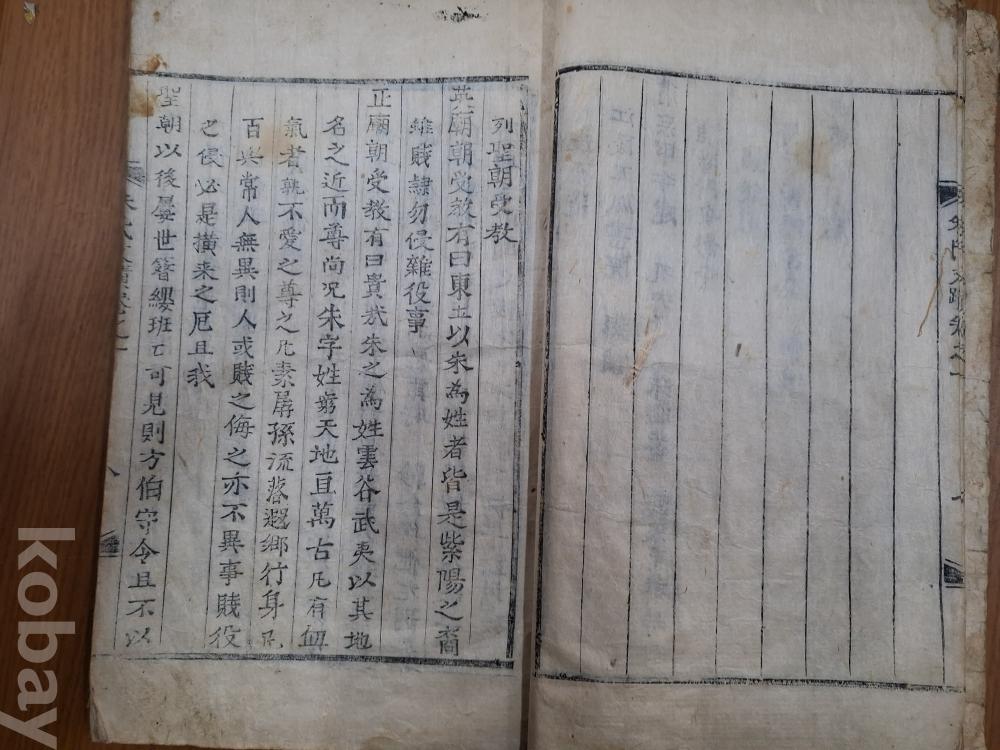 列聖朝受教
英廟朝受教有曰東土以朱為姓者皆是紫陽之裔
雖賤隷勿侵雜役事
正廟朝受教有曰貴哉朱之為姓雲谷武夷以其地
名之近而尊尚况朱字姓窮天地亘萬古凡有血
氣者孰不愛之尊之凡素孱孫流落遐鄉行身凡
百與常人無異則人或賤之侮之亦不異事賤役
之侵必是橫来之厄且我
聖朝以後屡世簪纓班班可見則方伯守令且不以
八
kobay